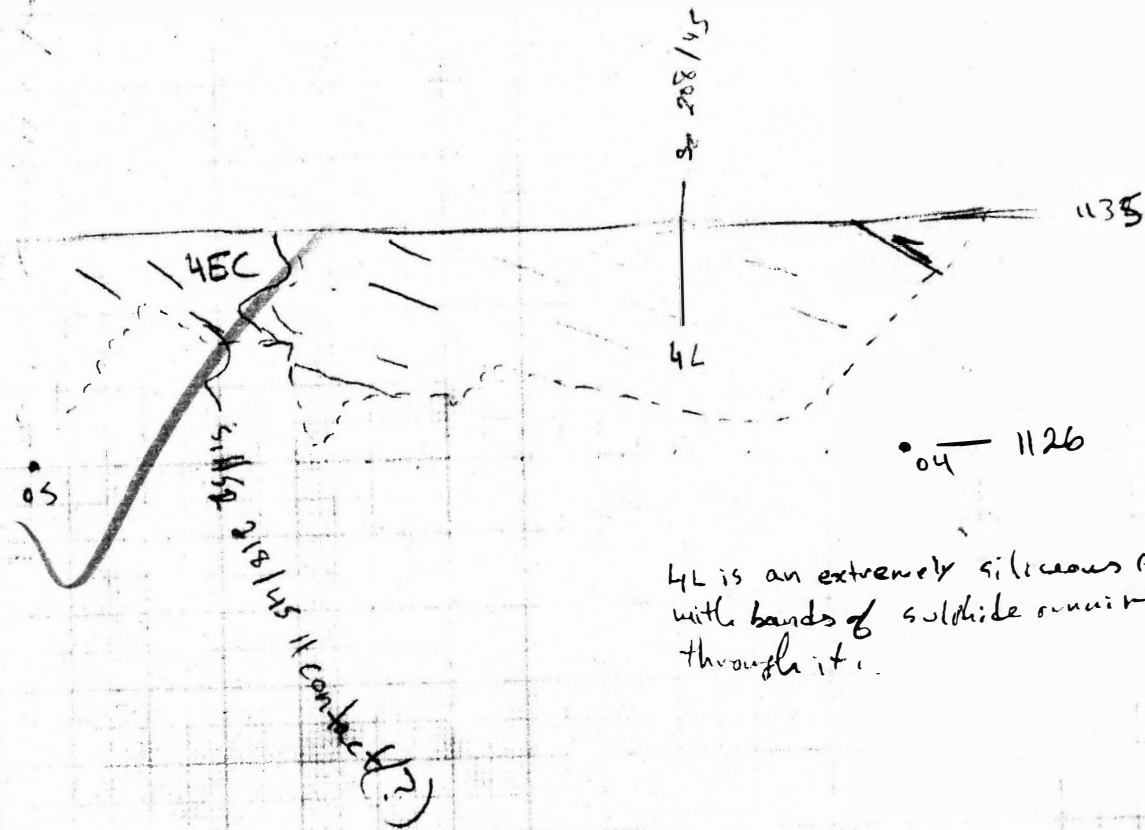 208/45
1135
4EC
4L
04 1126
05
218/45 11 contact(?)
4L is an extremely siliceous
with bands of sulphide
through it.